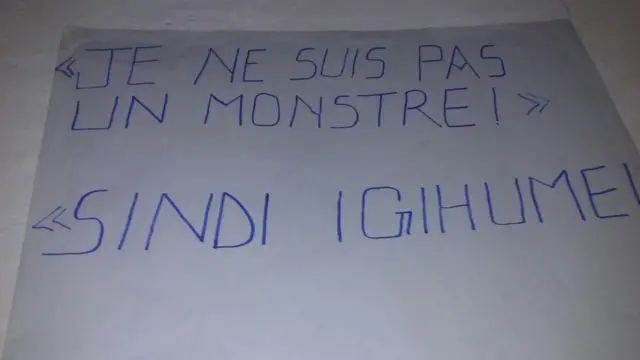 «JE NE SUIS PAS
UN MONSTRE! »
«SINDI IGIHUME